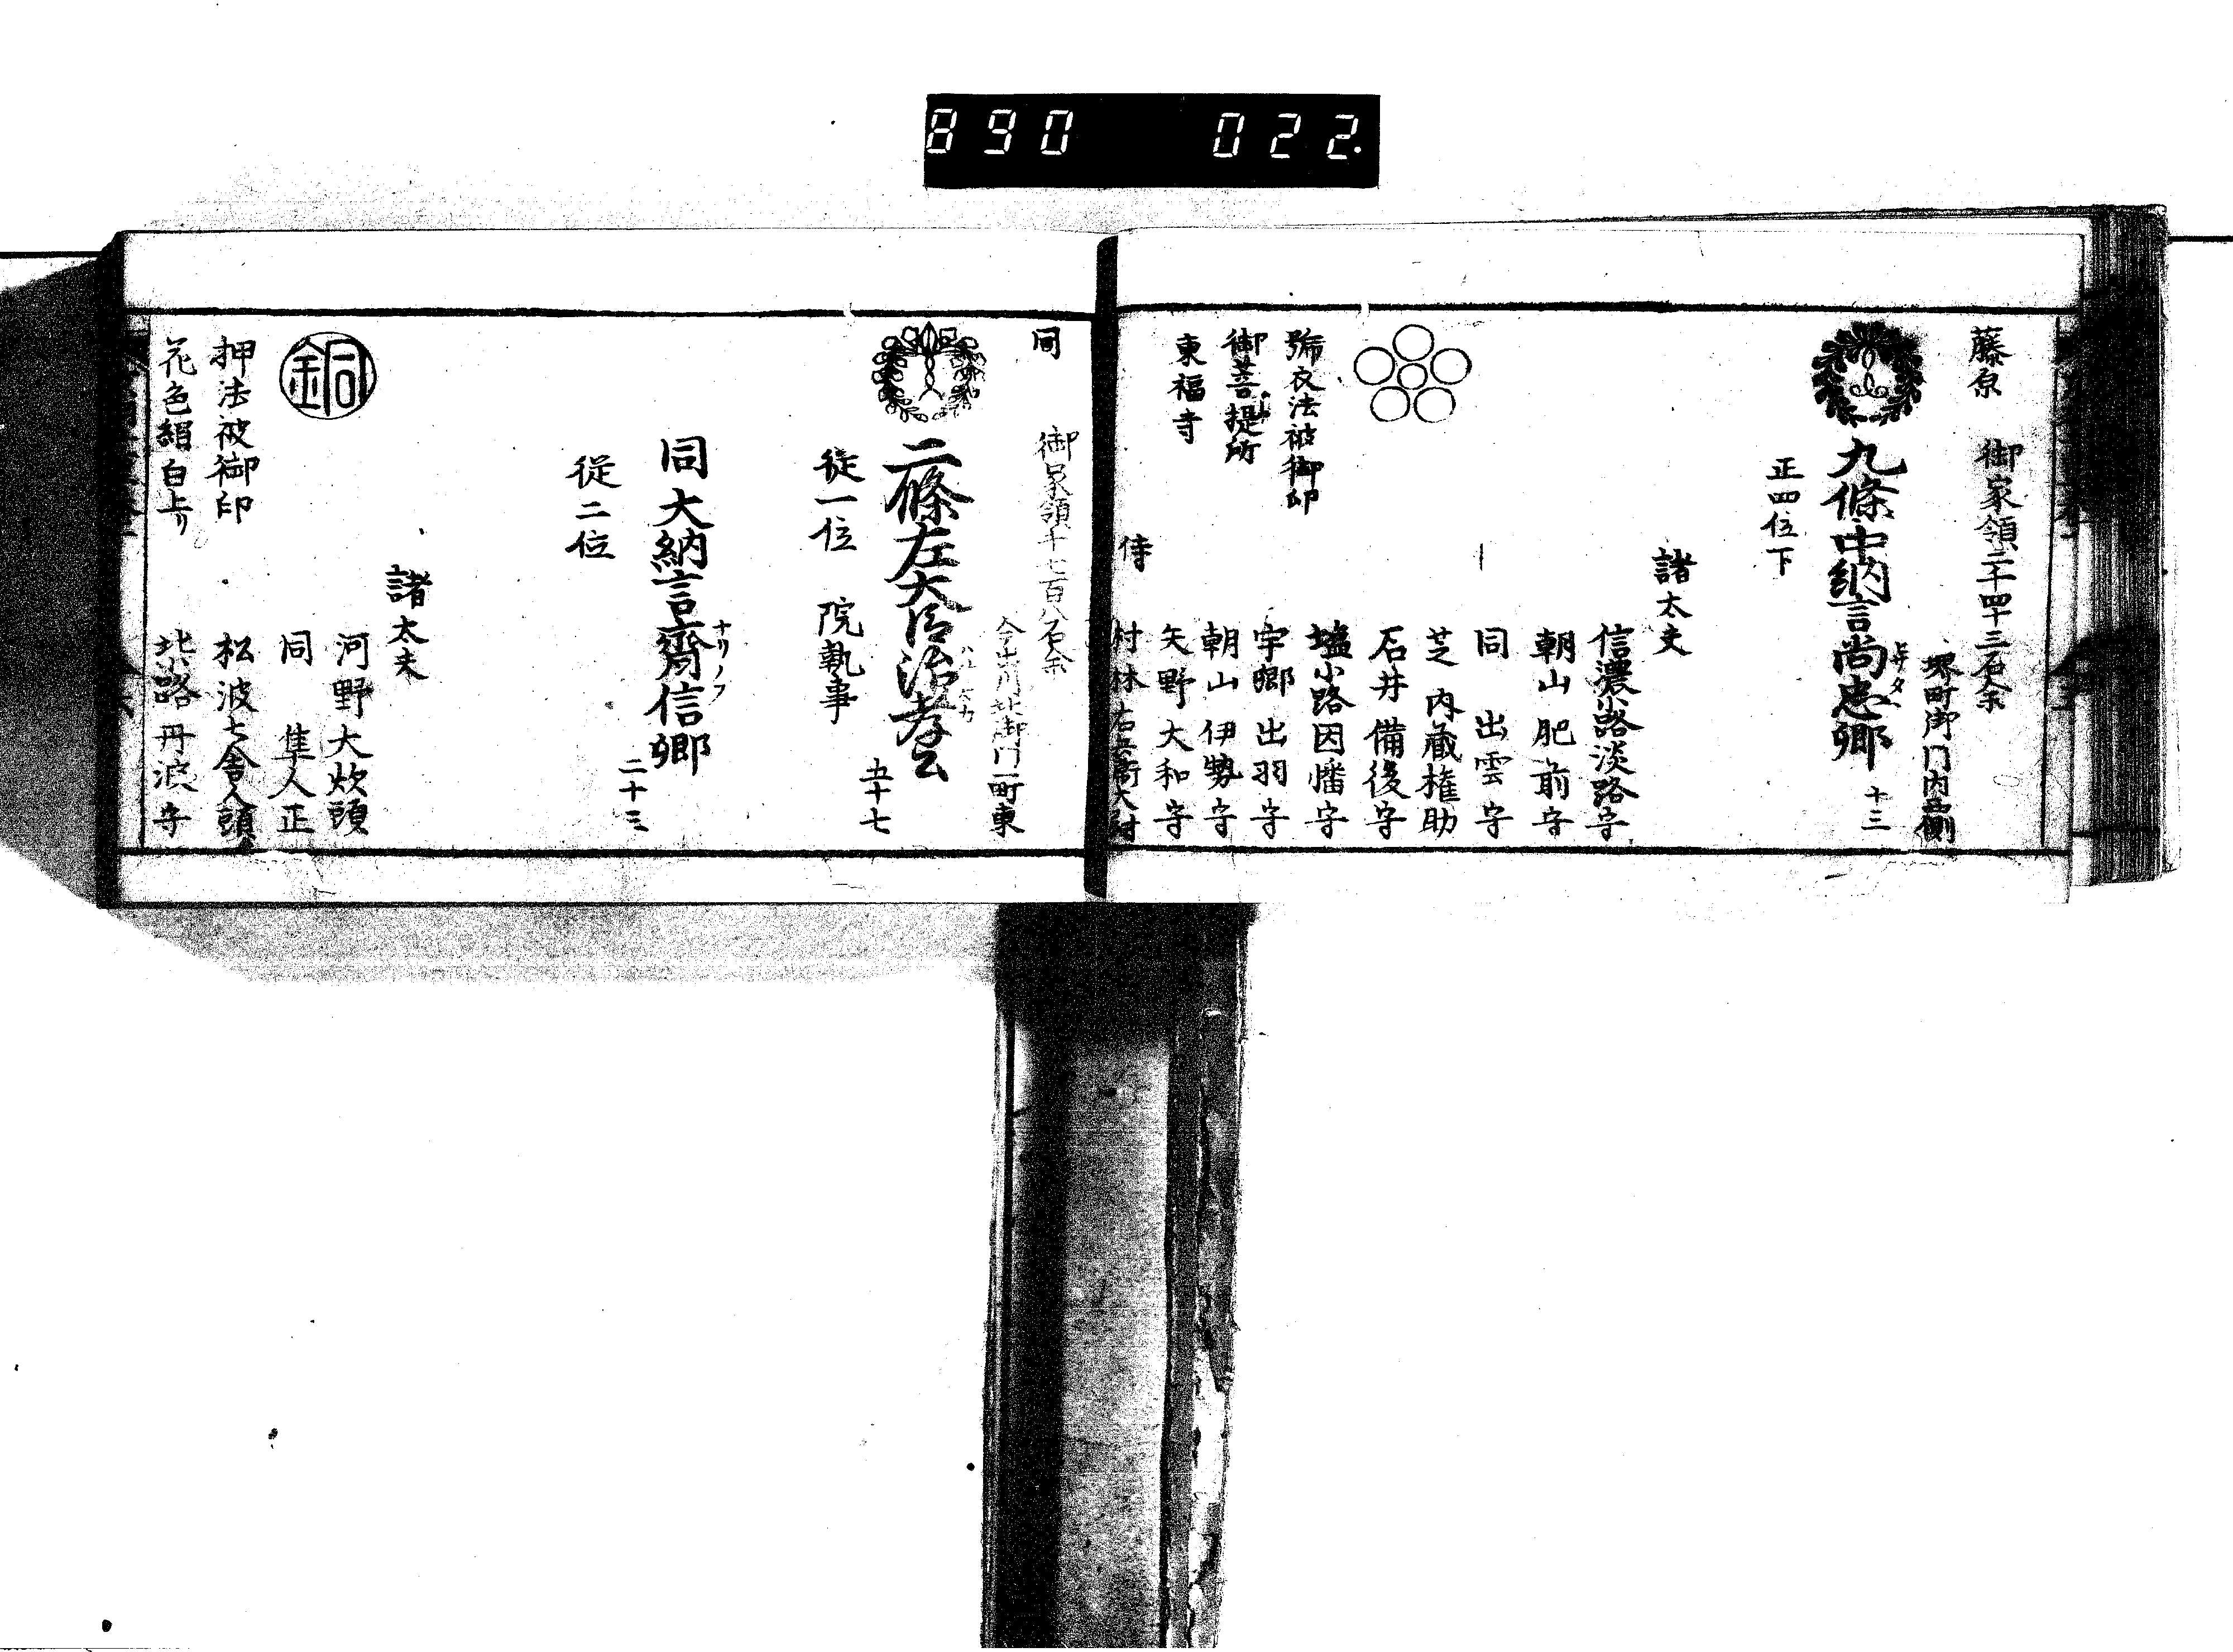 890 022.
藤原 御家領二千四十三石余
堺町御門内西側
九條中納言尚忠卿 十三
ヒサタヽ
正四位下
諸太夫
信濃小路淡路守
朝山肥前守
同 出雲守
芝 内蔵権助
石井備後守
塩小路因幡守
宇郷出羽守
朝山伊勢守
矢野大和守
侍
村林右兵衛大尉
看衣法被御印
御菩提所
東福寺
同 御家領千七百八石余
今出川北御門一町東
二條左大臣治孝公 五十七
従一位 院執事
同大納言齊信卿 二十三
ナリノフ
従二位
諸太夫
河野大炊頭
同 隼人正
松波大舎人頭
北小路丹波守
銅
押法被御印
花色絹白上リ